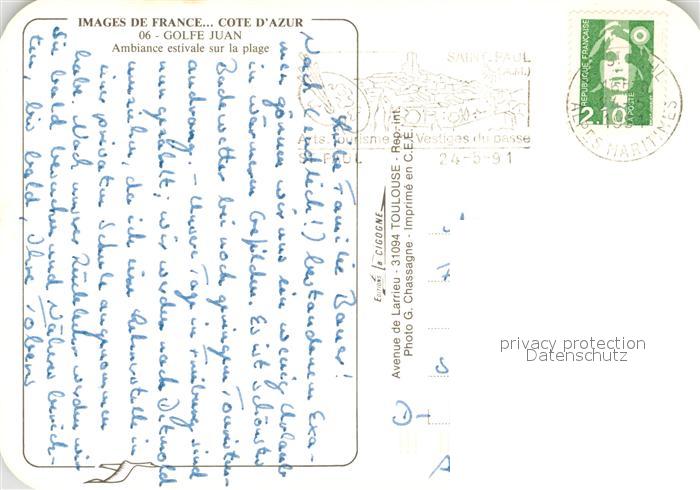 IMAGES DE FRANCE... COTE D'AZUR
06 - GOLFE JUAN
Ambiance estivale sur la plage
Liebe Familie Bauer!
Nach (endlich!) bestandenem Exa-
men gönnen wir uns ein wenig Urlaub
in wärmeren Gefilden. Es ist schönstes
Badewetter bei noch geringem Touristen-
andrang. - Unsere Tage in Freiburg sind
nun gezählt; wir werden nach Detmold
umziehen, da ich eine Referendarstelle in
einer privaten Schule angenommen
habe. Nach unserer Rückkehr werden wir
Sie bald besuchen und Näheres berich-
ten, bis bald, Ihre
Editions la CIGOGNE
Avenue de Larrieu - 31094 TOULOUSE - Rep. int.
Photo G. Chassagne - Imprimé en C.E.E.
SAINT PAUL
(A.M.)
Arts Tourisme Vestiges du passé
ST PAUL 24-5-91
REPUBLIQUE FRANÇAISE
LA POSTE
2,10
ALPES MARITIMES
privacy protection
Datenschutz